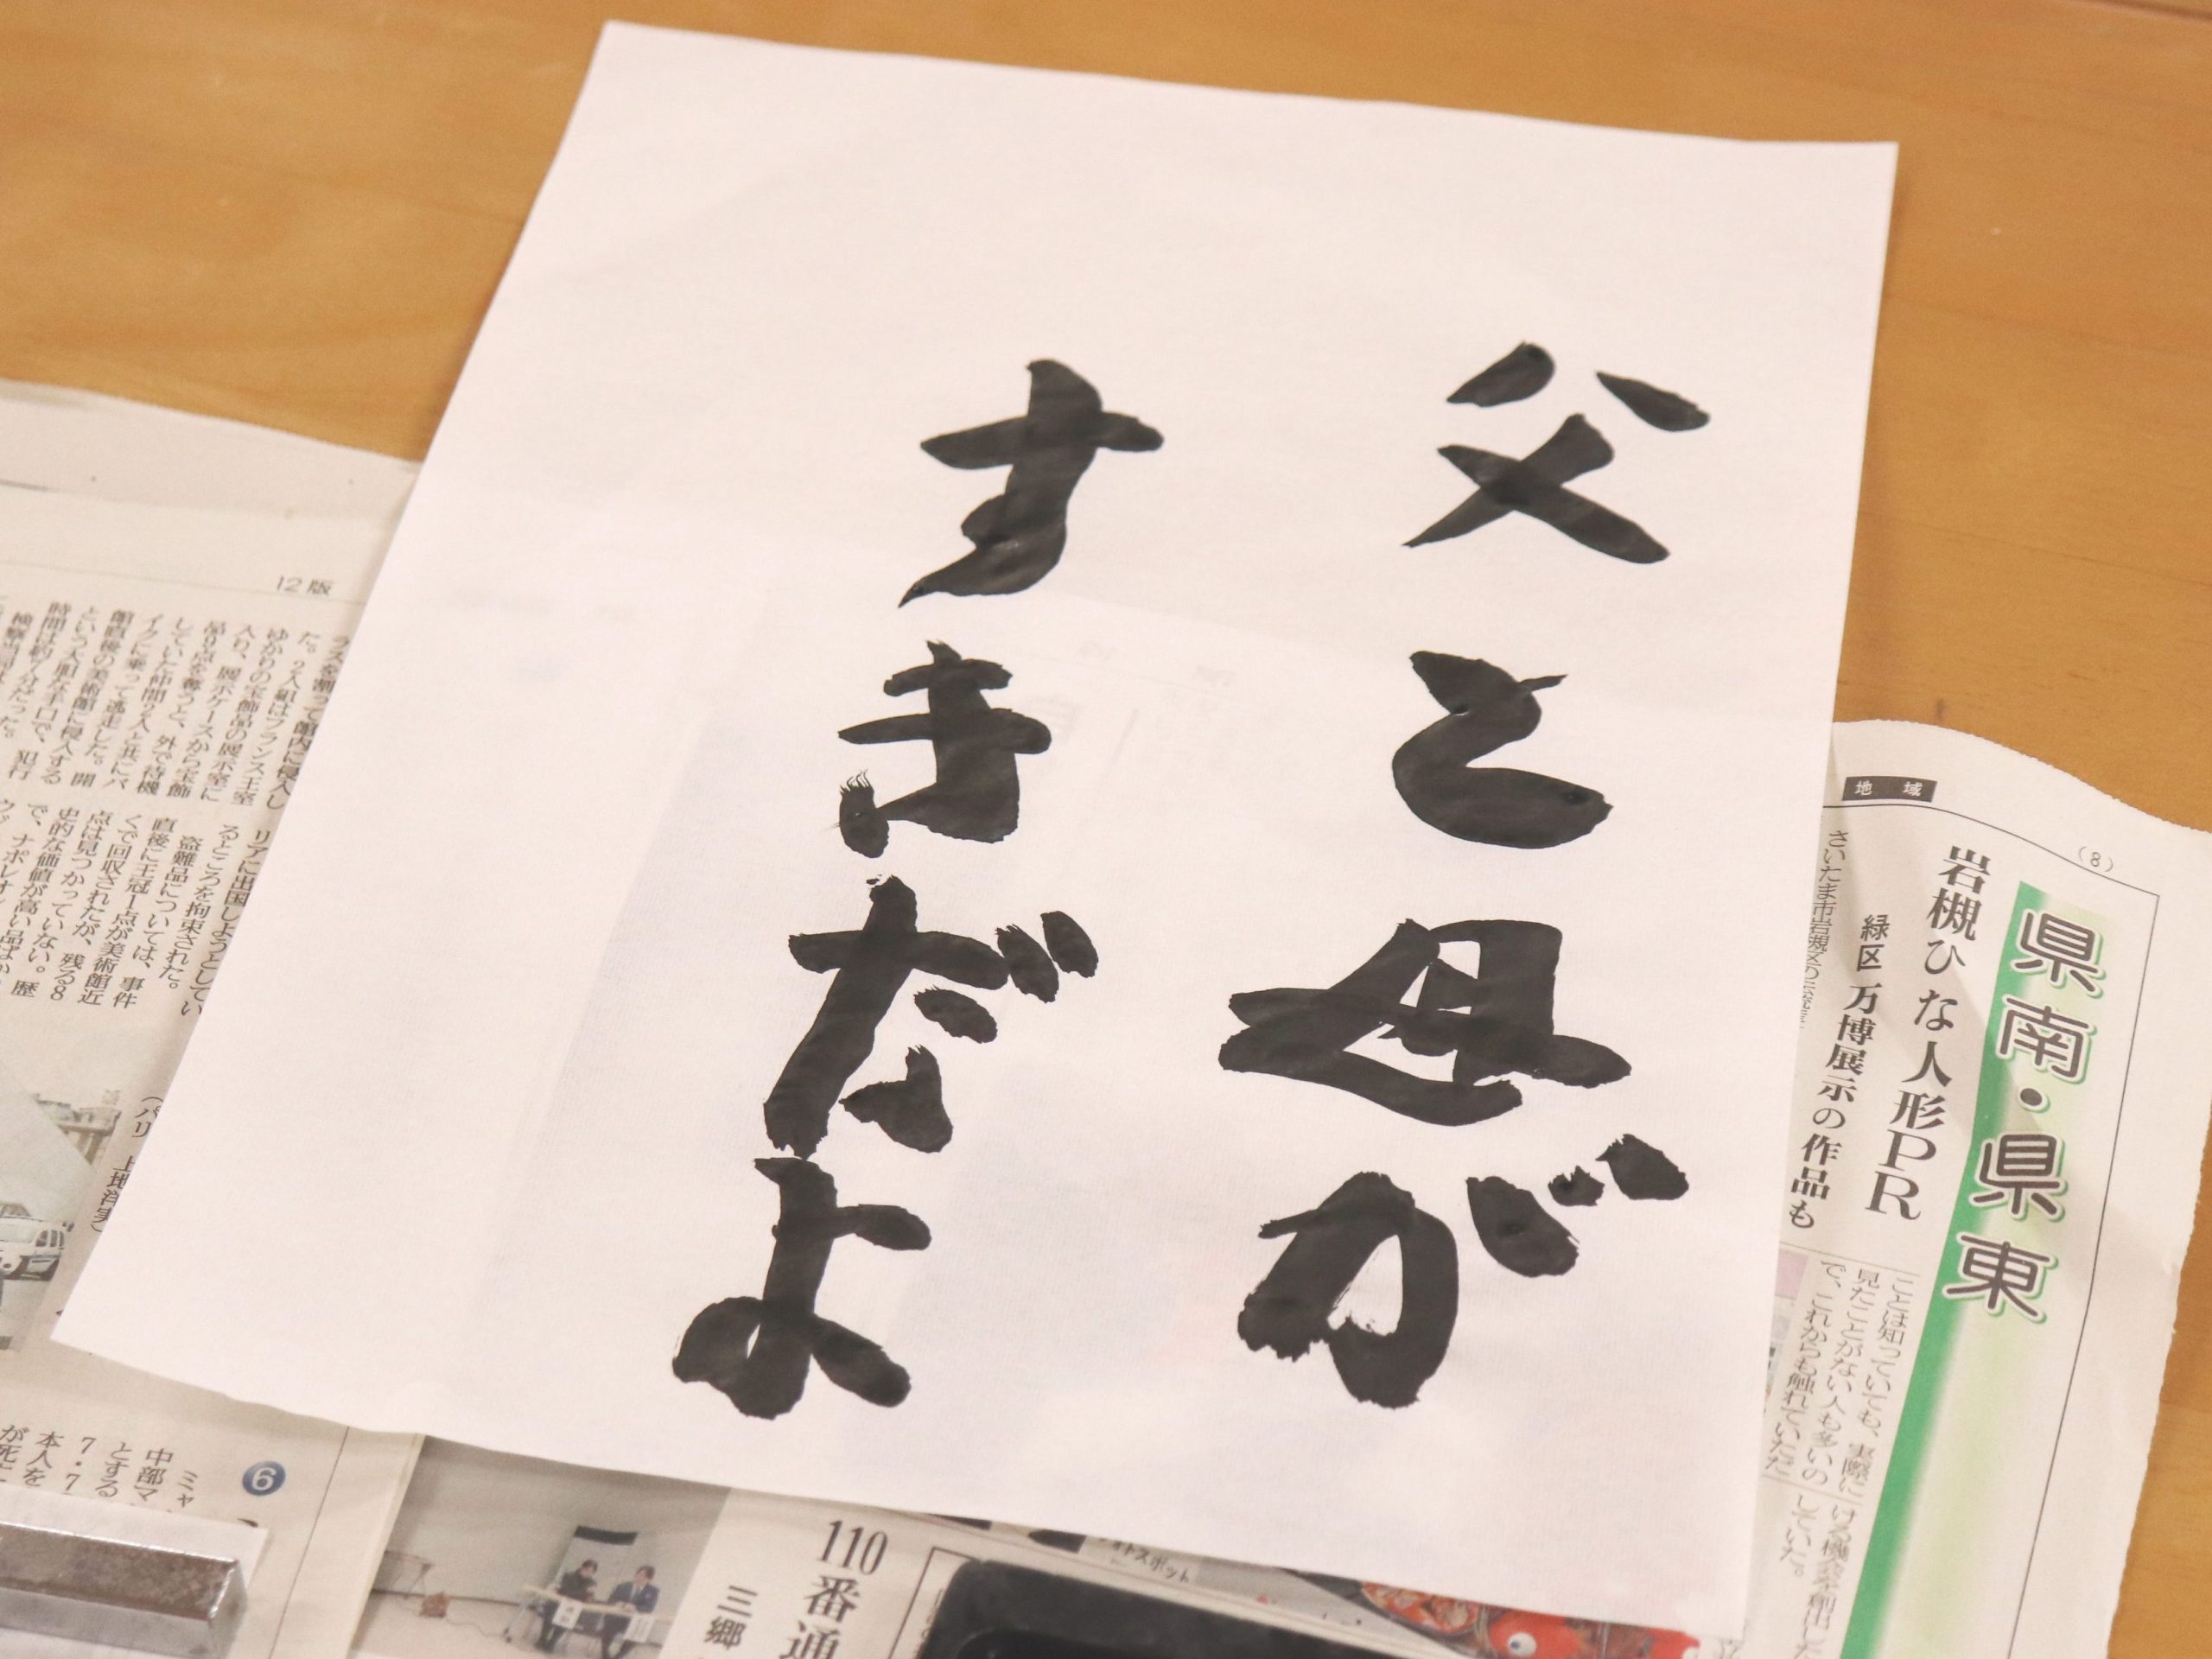 父と母が
すきだよ
地域
(8)
県南・県東
岩槻ひな人形PR
緑区 万博展示の作品も
ことは知っていても、実際に
見たことがない人も多いの
で、これからも触れていただ
ける機会を創出した
していた。
12版
た。2人組はフランス王室
ゆかりの宝飾品の展示室に
入り、展示ケースから宝飾
品9点を奪うと、外で待機
していた仲間2人と共にバ
イクに乗って逃走した。開
館直後の美術館に侵入する
という大胆な手口で、犯行
時間は約7分だった。
リアに出国しようとしてい
るところを拘束された。
盗難品については、事件
直後に王冠1点が美術館近
くで回収されたが、残る8
点は見つかっていない。歴
史的な価値が高い品ばか
で、ナポレオン
6
ミャ
中部マ
とする
7・7
本人を
が死亡
110番通
三郷